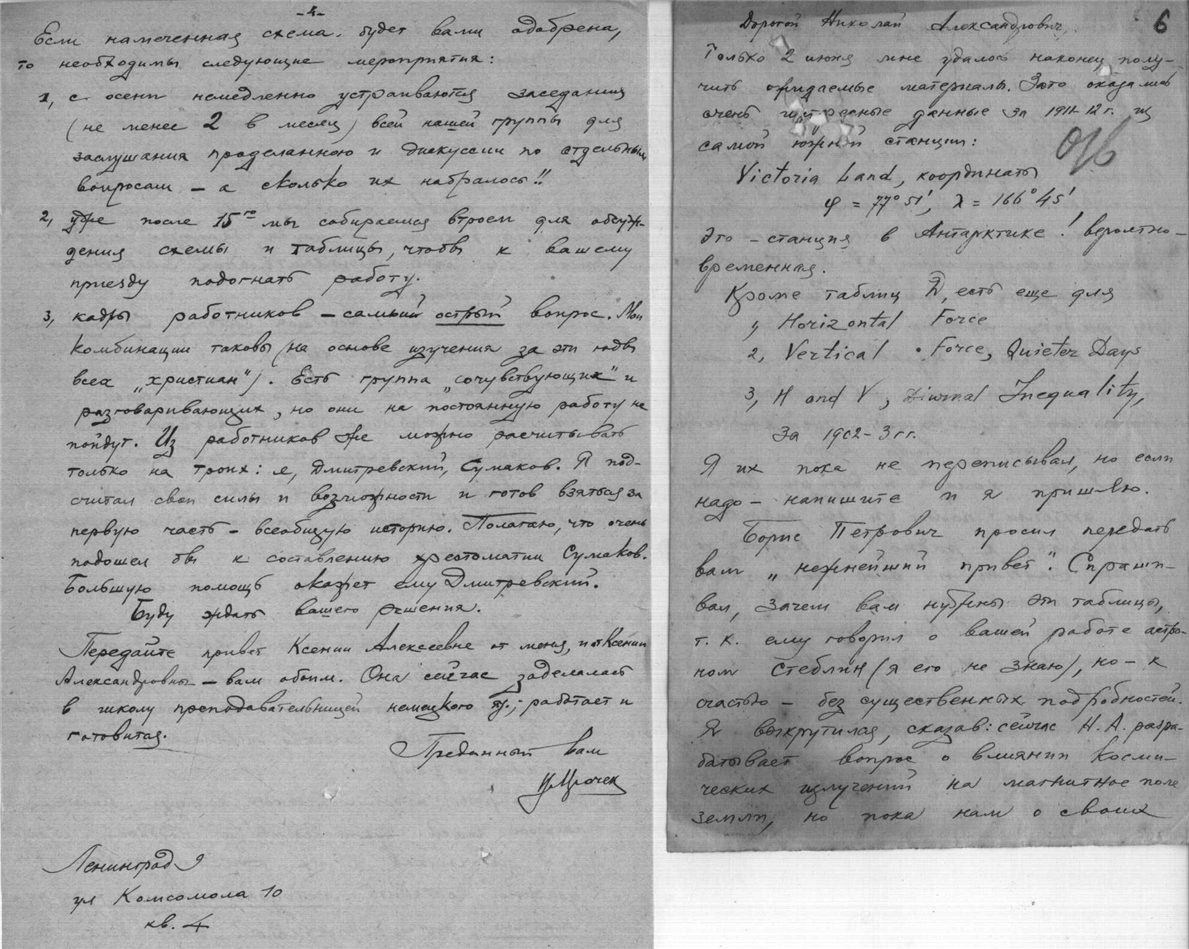 -4-
Если намеченная схема будет вами одобрена,
то необходимы следующие мероприятия:
1, с осени немедленно устраиваются заседания
(не менее 2 в месяц) всей нашей группы для
заслушания проделанного и дискуссии по отдельным
вопросам – а сколько их набралось!!
2, уже после 15го мы собираемся втроем для обсуж-
дения схемы и таблицы, чтобы к вашему
приезду подогнать работу.
3, кадры работников – самый острый вопрос. Мои
комбинации таковы (на основе изучения за эти годы
всех „христиан"). Есть группа „сочувствующих" и
разговаривающих, но они на постоянную работу не
пойдут. Из работников же можно расчитывать
только на троих: я, Дмитревский, Сумаков. Я под-
считал свои силы и возможности и готов взяться за
первую часть – всеобщую историю. Полагаю, что очень
подошел бы к составлению хрестоматии Сумаков.
Большую помощь окажет ему Дмитревский.
Буду ждать вашего решения.
Передайте привет Ксении Алексеевне от меня, и от Ксении
Александровны – вам обоим. Она сейчас заделалась
в школу преподавательницей немецкого яз.; работает и
готовится.
Преданный вам
Ленинград 9
ул Комсомола 10
кв. 4
6
Дорогой Николай Александрович,
Только 2 июня мне удалось наконец полу-
чить ожидаемые материалы. Это оказались
очень интересные данные за 1911-12 г. из
самой южной станции:
Victoria Land, координаты
φ = 77° 51', λ = 166° 45'
Это – станция в Антарктике! вероятно –
временная.
Кроме таблиц D, есть еще для
1, Horizontal Force
2, Vertical Force, Quieter Days
3, H and V, Diurnal Inequality,
за 1902-3 гг.
Я их пока не переписывал, но если
надо – напишите и я пришлю.
Борис Петрович просил передать
вам „нежнейший привет". Спраши-
вал, зачем вам нужны эти таблицы,
т. к. ему говорил о вашей работе астро-
ном Стеблин (я его не знаю), но – к
счастью – без существенных подробностей.
Я выкрутился, сказав: сейчас Н. А. разра-
батывает вопрос о влиянии косми-
ческих излучений на магнитное поле
земли, но пока нам о своих